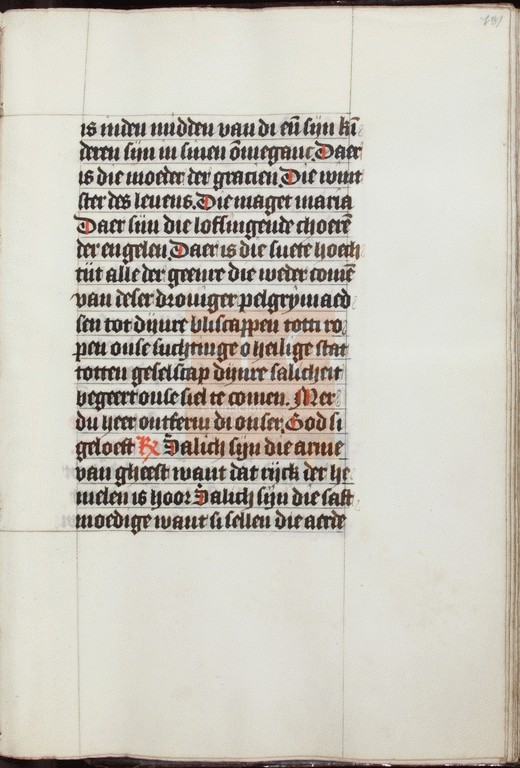 is inden midden van di eñ sijn kī
deren sijn in sinen ōmeganc. Daer
is die moeder der gracien. Die wint
ster des levens. Die maget maria
Daer sijn die loffingende choerē
der engelen. Daer is die suete hoech
tijt alle der geenre die weder comē
van deser droviger pelgrymaed
sen tot dijnre bliscappen totti ro
pen onse suchtinge o heilige stat
totten geselscap dijnre salicheit
begeert onse siel te comen. Mer
du heer ontferm di onser. God si
geloeft ꝶ Salich sijn die arme
van gheest want dat rijck der he
melen is hoor Salich sijn die saft
moedige want si sellen die aerde